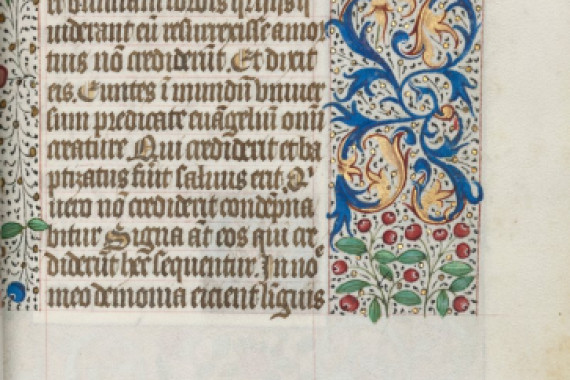 et duritiam cordis qr hijs q
uiderant eū resurrexisse a mor
tuis nō crediderūt. Et dixit
eis. Euntes ī mundū vniuer
sum predicate euāgeliū omī
creature Qui crediderit et ba
ptizatus fūit saluus erit. Q'
uero nō crediderit condēpna
bitur Signa āt eos qui cre
diderūt hec sequentur. In no
meo demonia eicient liguis